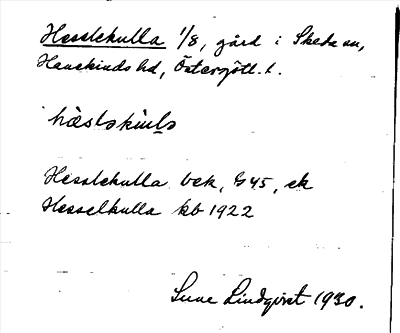 Hesslekulla 1/8, gård i Skeda sn,
Hanekinds hd, Östergötl. l.
hàslskùls
Hesslekulla bek, G45, ek
Hesselkulla kb 1922
Sune Lindqvist 1930.